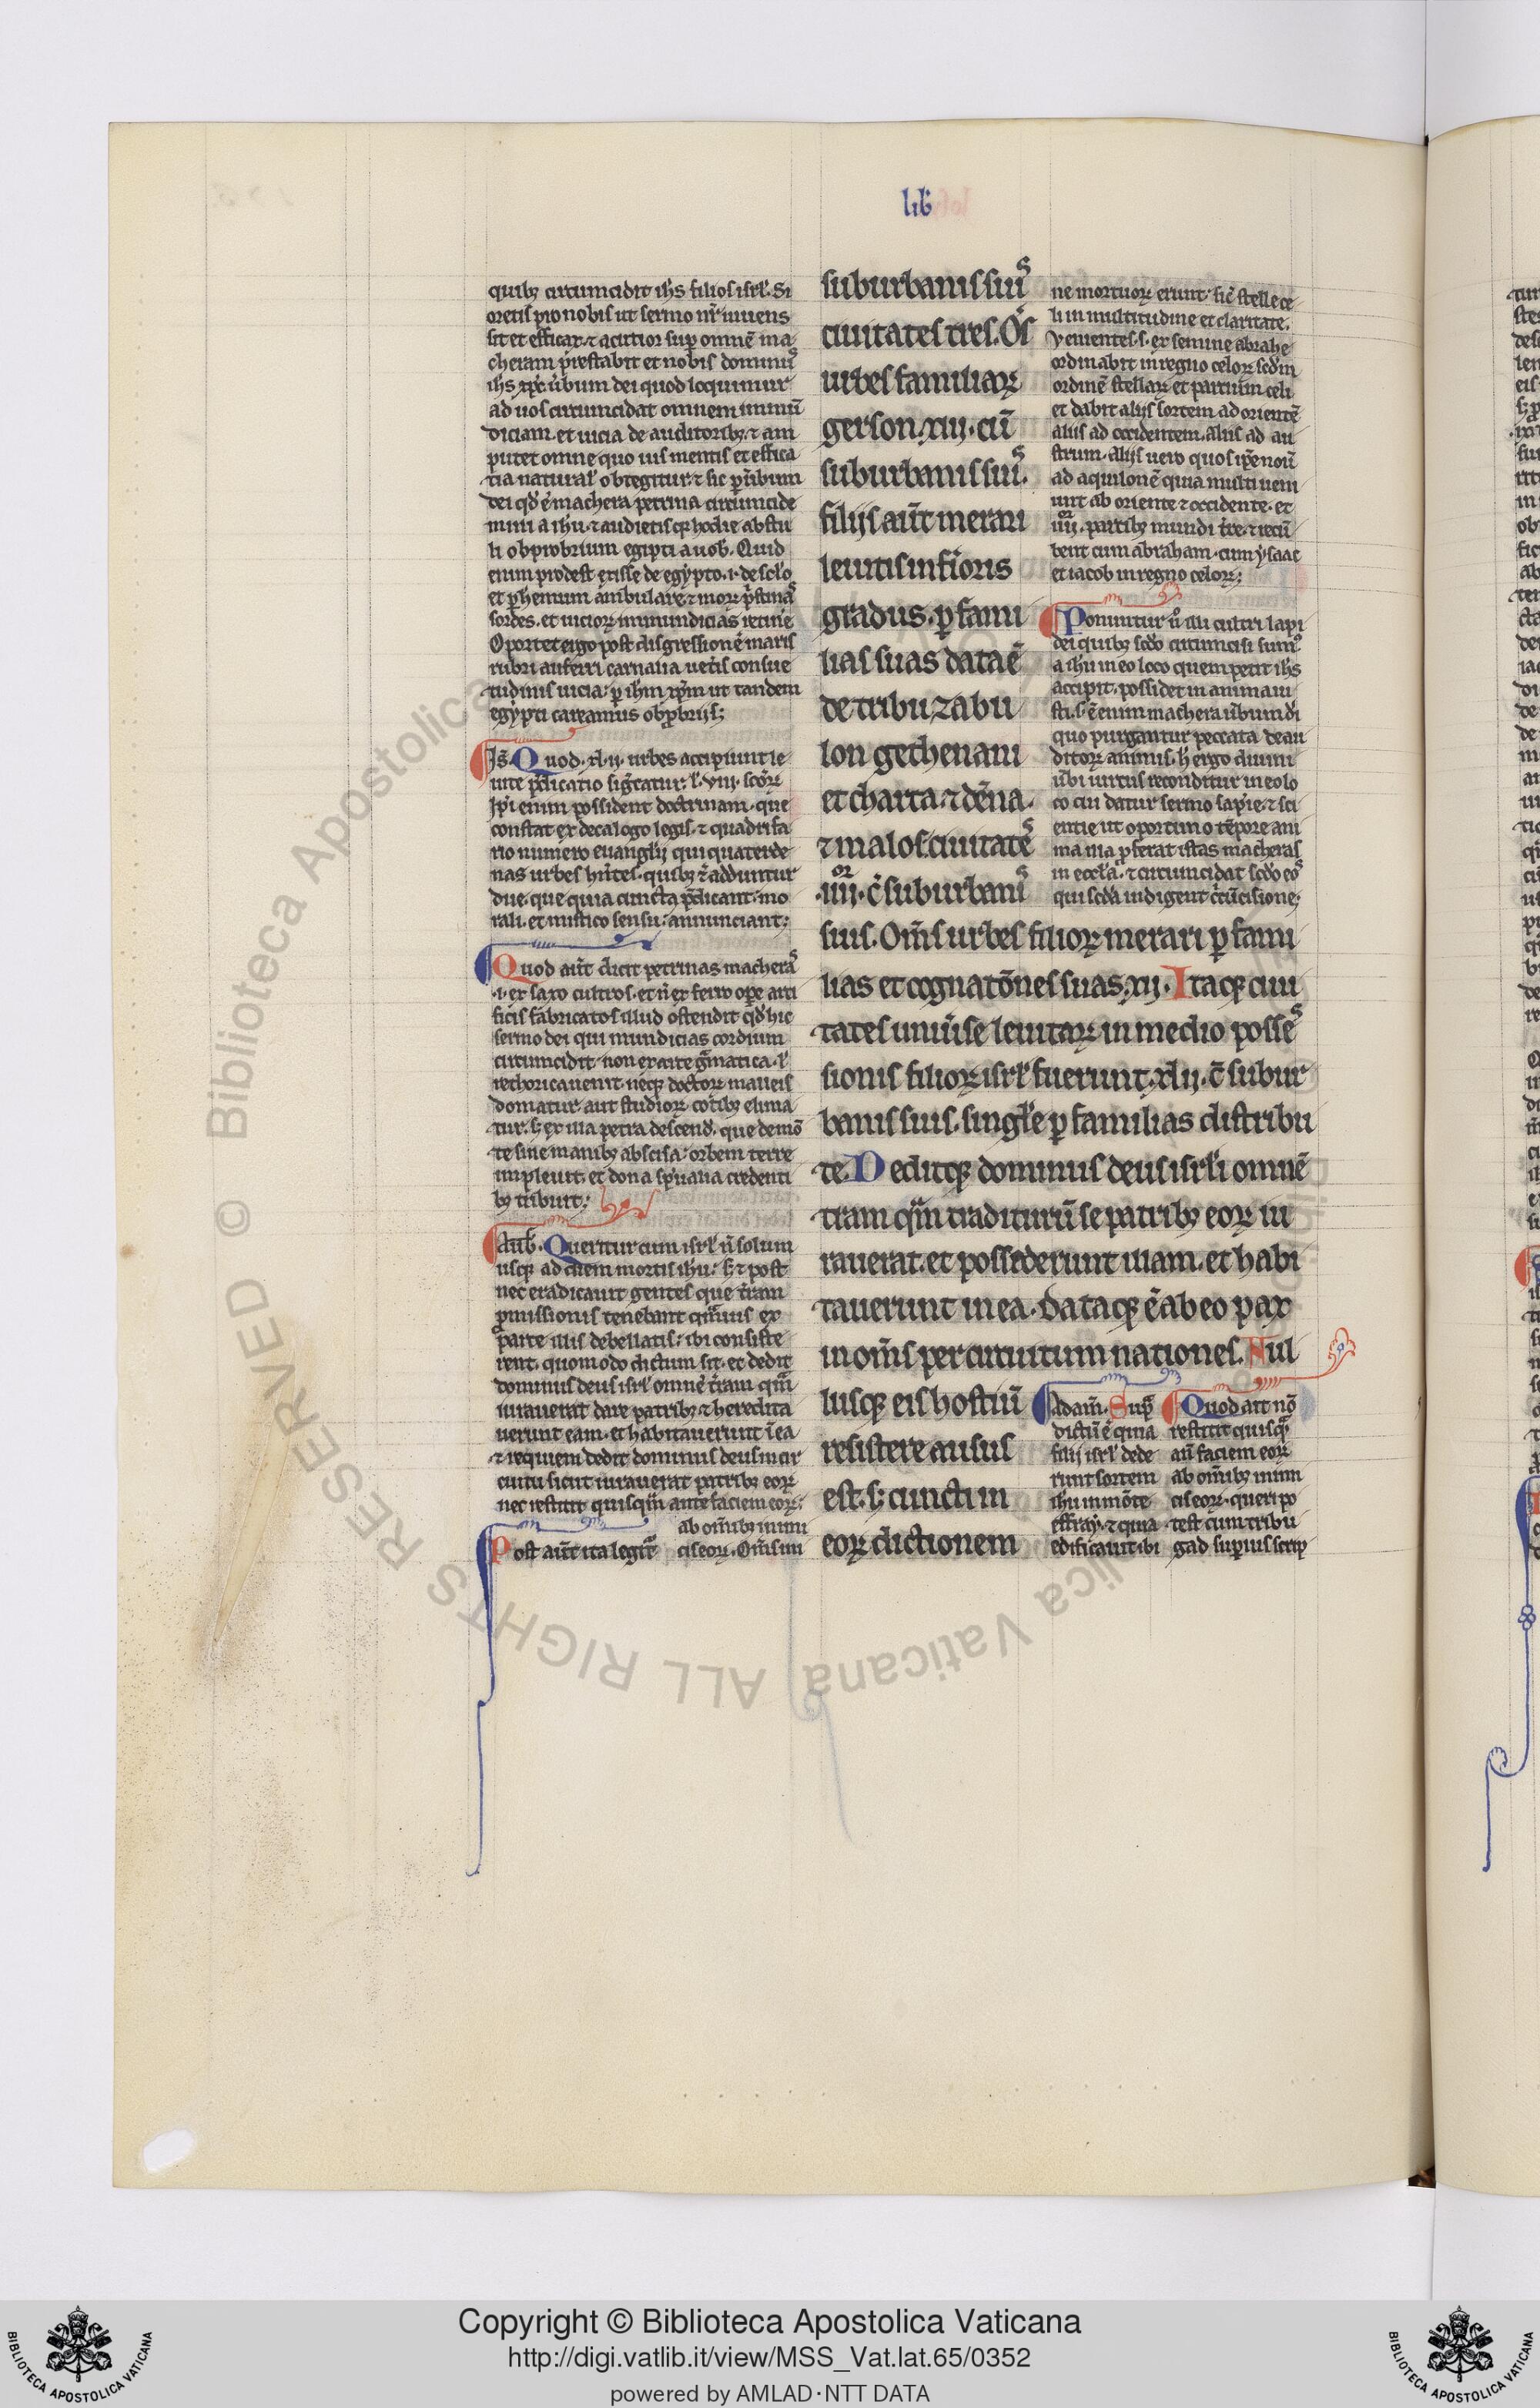 lib̃
quibꝫ circumcidit ihs filios isrl̃. Si
oretis pro nobis ut sermo nr̃ uiuens
sit et efficax ⁊ acutior sup omnẽ ma
cheram prestabit et nobis dominꝰ
ihs xp̃c ũbum dei quod loquimur
ad uos circumcidat omnem immũ
diciam. et uicia de auditoribꝫ ⁊ am
putet omne quo uis mentis et effica
tia natural̃ obtegitur. ⁊ sic p ũbum
dei qd̃ ẽ machera petrina circumcide
mini a ihu. ⁊ audietis qꝫ hodie abstu
li obprobrium egipti a uob̃. Quid
enim prodest exisse de egypto .i. de sc̃lo
et p heremum ambulare ⁊ morꝝ pristinas
sordes. et uiciorꝝ inmundicias retine
Oportet ergo post disgressionẽ maris
rubri auferri carnalia ueteris consue
tudinis uicia: p ihm xp̃m ut tandem
egypti careamus obprobriis;
Is̃. Quod .xl.ii. urbes accipiunt le
uite p̃dicatio sig̃catur. l̃ .viii. sc̃orꝝ
Ip̃i enim possident doctrinam. que
constat ex decalogo legis. ⁊ quadrifa
rio numero euangl̃ii qui quaterde
nas urbes hñtes. quibꝫ ⁊̃ adduntur
due. que quia cuncta p̃dicant: mo
rali. et mistico sensu: annunciant:
Quod aũt dicit petrinas macheras
.i. ex saxo cultros. et ñ ex ferro ope arti
ficis fabricatos illud ostendit qd̃ hic
sermo dei qui inmundicias cordium
circumcidit non ex arte g̃matica. l̃
rethorica uenit. neqꝫ doctorꝝ malleis
domatur aut studiorꝝ cotibꝫ elima
tur. sꝫ ex illa petra descend̃. que de mõ
te sine manibꝫ abscisa: orbem terre
impleuit. et dona sp̃ualia credenti
bꝫ tribuit;
Aug̃. Queritur cum isrl̃ ñ solum
usqꝫ ad diem mortis ihu: sꝫ ⁊ post
nec eradicauit gentes que t̃ram
p̃missionis tenebant qm̃uis ex
parte illis debellatis: ibi consiste
rent. quomodo dictum sit. et dedit
dominus deus isrl̃ omnẽ t̃ram qm̃
iurauerat dare patribꝫ ⁊ heredita
uerunt eam. et habitauerunt ĩ ea
⁊ requiem dedit dominus deus in cir
cuitu sicut iurauerat patribꝫ eorꝝ
nec restitit quisqm̃ ante faciem eorꝝ:
ab om̃ibꝫ inimi
Post aũt ita legitᷣ ciseorꝝ. Om̃s ini
suburbanis suis
ciuitates tres. Om̃s
urbes familiarꝝ
gerson .xiii. cũ
suburbanis suis.
filijs aũt merari
leuitis inferioris
gradus. p fami
lias suas data ẽ
de tribu zabu
lon gechenam
et charta. ⁊ dẽna.
⁊ malos ciuitates
.iiii. c̃ suburbanis
suis. Om̃s urbes filiorꝝ merari p fami
lias et cognatõnes suas .xii. Itaqꝫ ciui
tates uniũse leuitarꝝ in medio posses
sionis filiorꝝ isrl̃ fuerunt .xlii. c̃ subur
banis suis. singl̃e p familias distribu
te. Deditqꝫ dominus deus isrl̃i omnẽ
t̃ram qm̃ traditurũ se patribꝫ eorꝝ iu
rauerat. et possederunt illam. et habi
tauerunt in ea. Dataqꝫ ẽ ab eo pax
in om̃s per circuitum nationes. Nul
lusqꝫ eis hostiũ
resistere ausus
est. sꝫ cuncti in
eorꝝ dictionem
ne mortuorꝝ erunt. sic̃ stelle ce
li in multitudine et claritate.
Venientes .s. ex semine abrahe
ordinabit in regno celorꝝ scd̃m
ordinẽ stellarꝝ et partium celi
et dabit alijs sortem ad orientẽ
aliis ad occidentem. Aliis ad au
strum. Alijs uero quos ip̃e nouit
ad aquilonẽ quia multi ueni
unt ab oriente ⁊ occidente. et
.iiii. partibꝫ mundi t̃re. ⁊ recũ
bent cum abraham. cum ysaac
et iacob in regno celorꝝ:
Ponuntur ũ illi cultri lapi
dei quibꝫ scd̃o circumcisi sunt
a ihu in eo loco quem petit ihs
accipit. possidet in anima iu
sti. s. ẽ enim machera ũbum dĩ
quo purgantur peccata de au
ditorꝝ animis. h̃ ergo diuini
ũbi uirtus reconditur in eo lo
co cui datur sermo sapĩe ⁊ sci
entie ut oportuno tẽpore ani
ma illa p̃ferat istas macheras
in eccl̃a. ⁊ circumcidat scd̃o eos
qui scd̃a indigent c̃cũcisione;
Adam̃. Sup̃
dictũ ẽ quia
filij isrl̃ dede
runt sortem
ihu in mõte
effray. ⁊ quia
edificauit ibi
Quod ait nõ
restitit quisqꝫ
añ faciem eorꝝ
ab om̃ibꝫ inimi
cis eorꝝ. queri po
test cum tribu
gad superius scrip
Copyright © Biblioteca Apostolica Vaticana
http://digi.vatlib.it/view/MSS_Vat.lat.65/0352
powered by AMLAD·NTT DATA
BIBLIOTECA APOSTOLICA VATICANA
BIBLIOTECA APOSTOLICA VATICANA
© Biblioteca Apostolica Vaticana ALL RIGHTS RESERVED